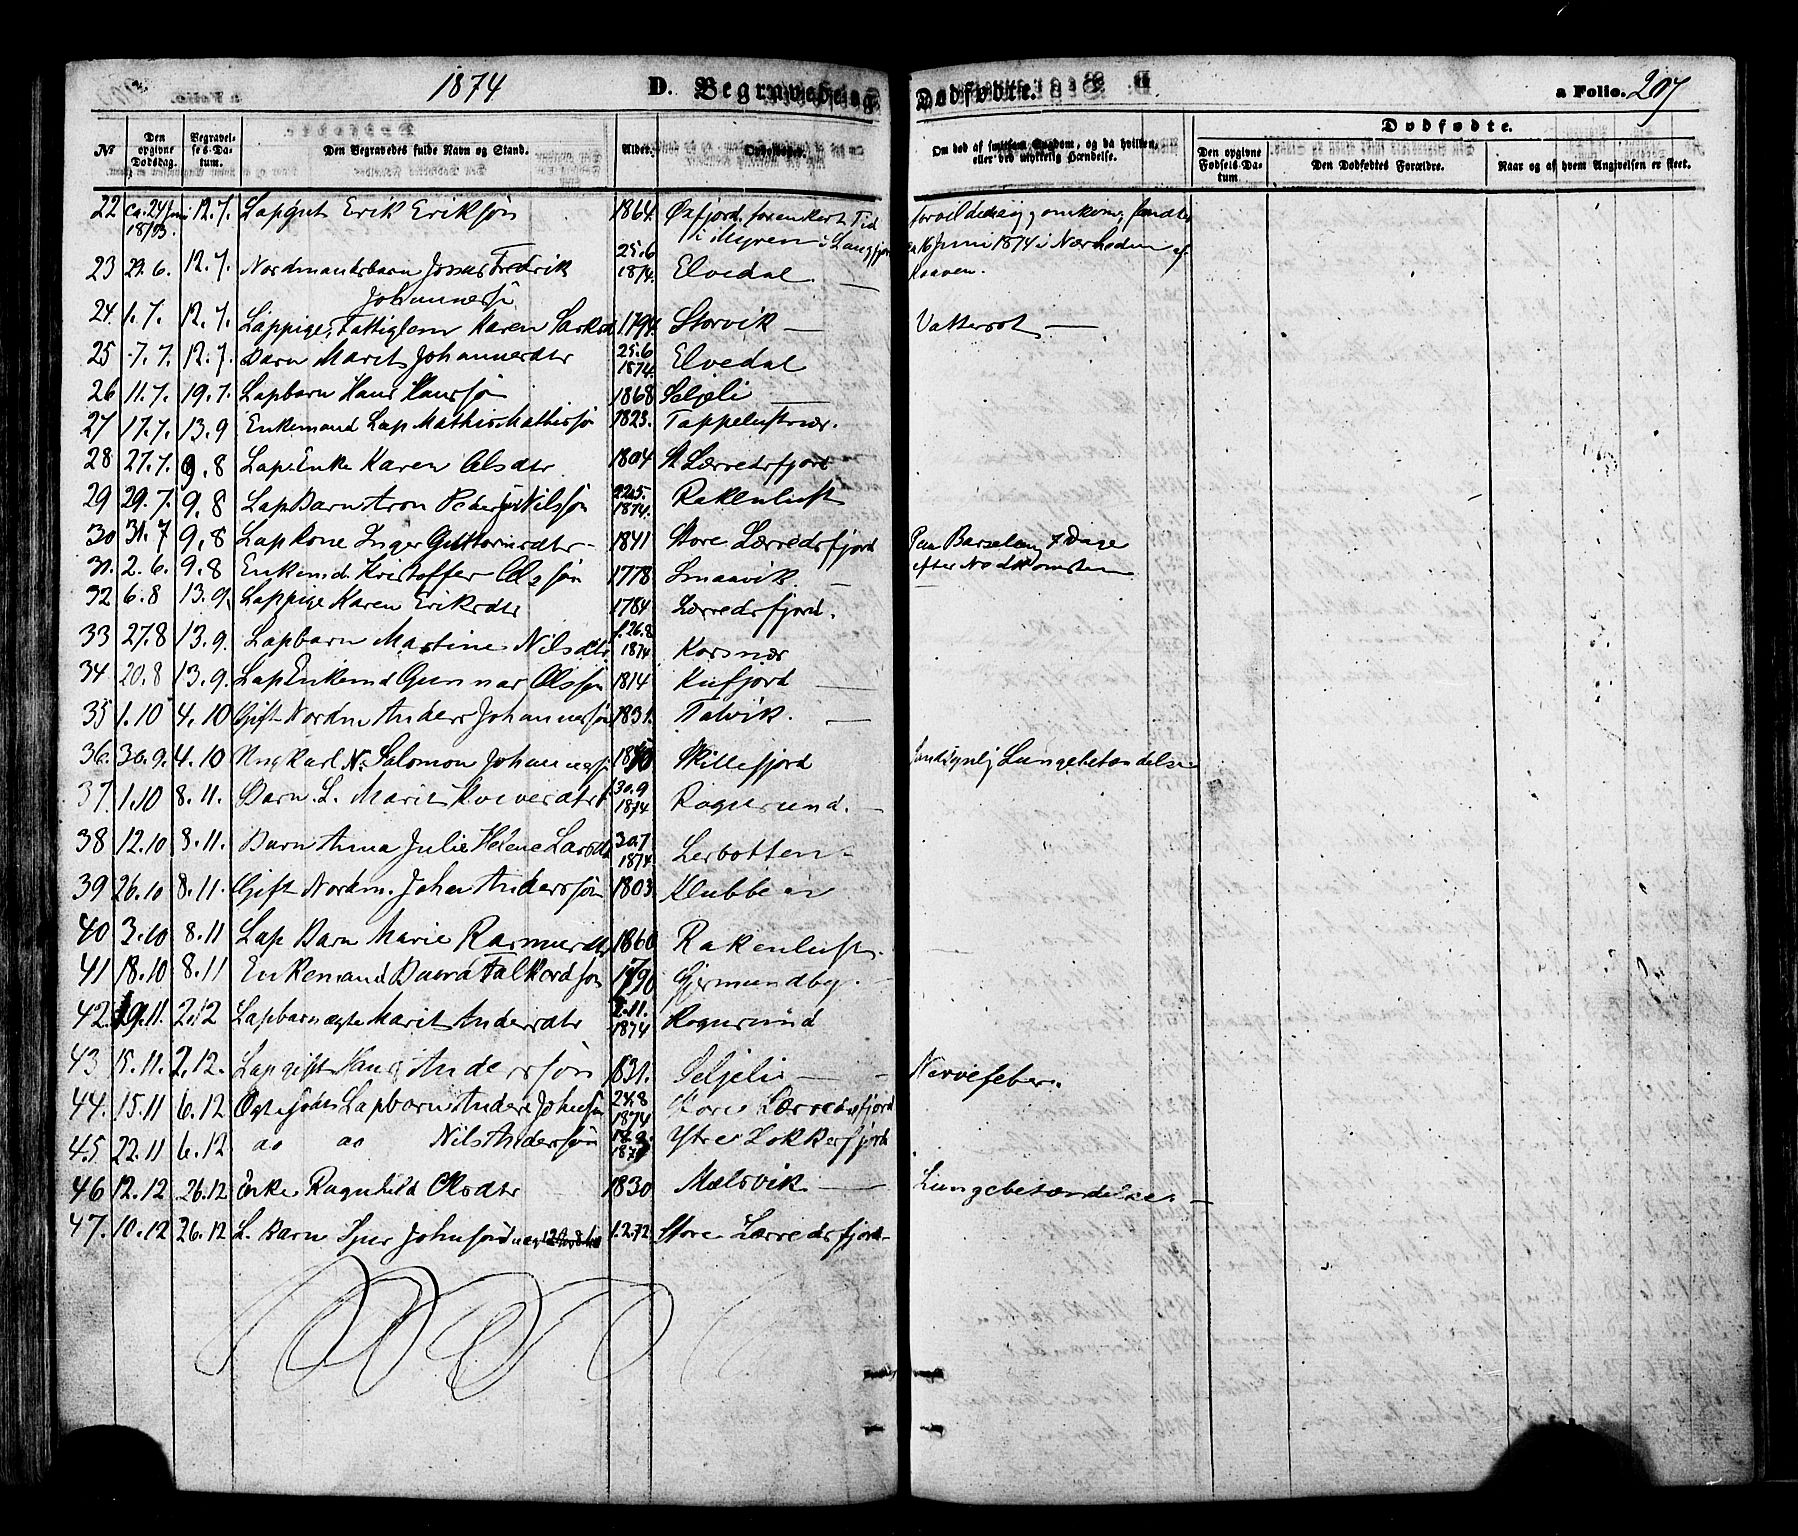 1874 D. Begravede og Dødfødte. a Folio. 207
№ Den opgivne Dødsdag. Begravelses-Datum. Den Begravedes fulde Navn og Stand. Alder. Opholdssted. Om død af smitsom Sygdom, og da hvilken, eller ved ulykkelig Hændelse.
Dødfødte.
Den opgivne Fødsels-Datum Den Dødfødtes Forældre. Naar og af hvem Angivelsen er skeet.
22 ca. 24 Jan. 1873. 12.7. Lapgut Erik Eriksøn 1864. Øxfjord, for en kort Tid i Myren i Langfjord forvildet sig, omkom, fandtes 16 Juni 1874 i Nærheden af
23 29.6. 12.7. Nordmandsbarn Fredrik Johannessøn 25.6 1874. Elvedal
24. 1.7. 12.7. Lappige, Fattiglem Karen Larsdr 1794. Storvik Vattersot
25 7.7. 12.7. Barn Marit Johannesdtr 25.6 1874. Elvedal
26 11.7. 19.7. Lapbarn Hans Hansøn 1868 Seljeli
27 17.7. 13.9 Enkemand Lap Mathis Mathissøn 1823. Tappeluftnær.
28 27.7. 9.8 Lap Enke Karen Olsdtr 1804 St Lærredsfjord
29 29.7. 9.8 Lap Barn Aron Peder Nilssøn 22.5. 1874. Rakkenluft
30 31.7 9.8 Lapkone Inger Guttormsdtr 1841 Store Lærredsfjord Paa Barselseng 7 Dage efter Nedkomsten
31. 2.6. 9.8 Enkemd. Kristoffer Olssøn 1778 Smaavik
32 6.8 13.9. Lappige Karen Eriksdtr 1784 Lærredsfjord.
33 27.8 13.9. Lapbarn Martine Nilsdtr f. 26.8 1874 Korsnær
34 20.8 13.9. Lap Enkemd Gunnar Olssøn 1814 Kufjord
35 1.10 4.10 Gift Nordm Anders Johannessøn 1831. Talvik.
36. 30.9. 4.10 Ungkarl N. Salomon Johannessøn Skillefjord Sandsynlig Lungebetændelse
37. 1.10 8.11. Barn L. Marit 30.9 1874 Rognsund.
38 12.10 8.11. Barn Anna Julie Helene Larsdtr 30.7 1874. Lerbotten
39 26.10 8.11. Gift Nordm. Johan Anderssøn 1803 Klubben
40 3.10 8.11 Lap Barn Marie Rasmusdtr 1860 Rakenluft.
41 18.10 8.11 Enkemand 1790 Gjermundby.
42. 19.11. 2.12 Lapbarn ægte Marit Andersdtr 1.11. 1874 Rognsund
43 15.11. 2.12. Lap gift Hans Anderssøn 1831. Seljeli Nervefeber.
44. 15.11 6.12 Ægtefødt Lapbarn Anders Johnsøn 24.8 1874 Store Lærredsfjord
45 22.11 6.12 do do Nils Anderssøn Ytre Lokkerfjord
46 12.12 26.12 Enke Ragnhild Olsdtr 1830 Melsvik Lungebetændelse
47. 10.12 26.12 L. Barn Johnsøn 1.2.72. Store Lærredsfjord